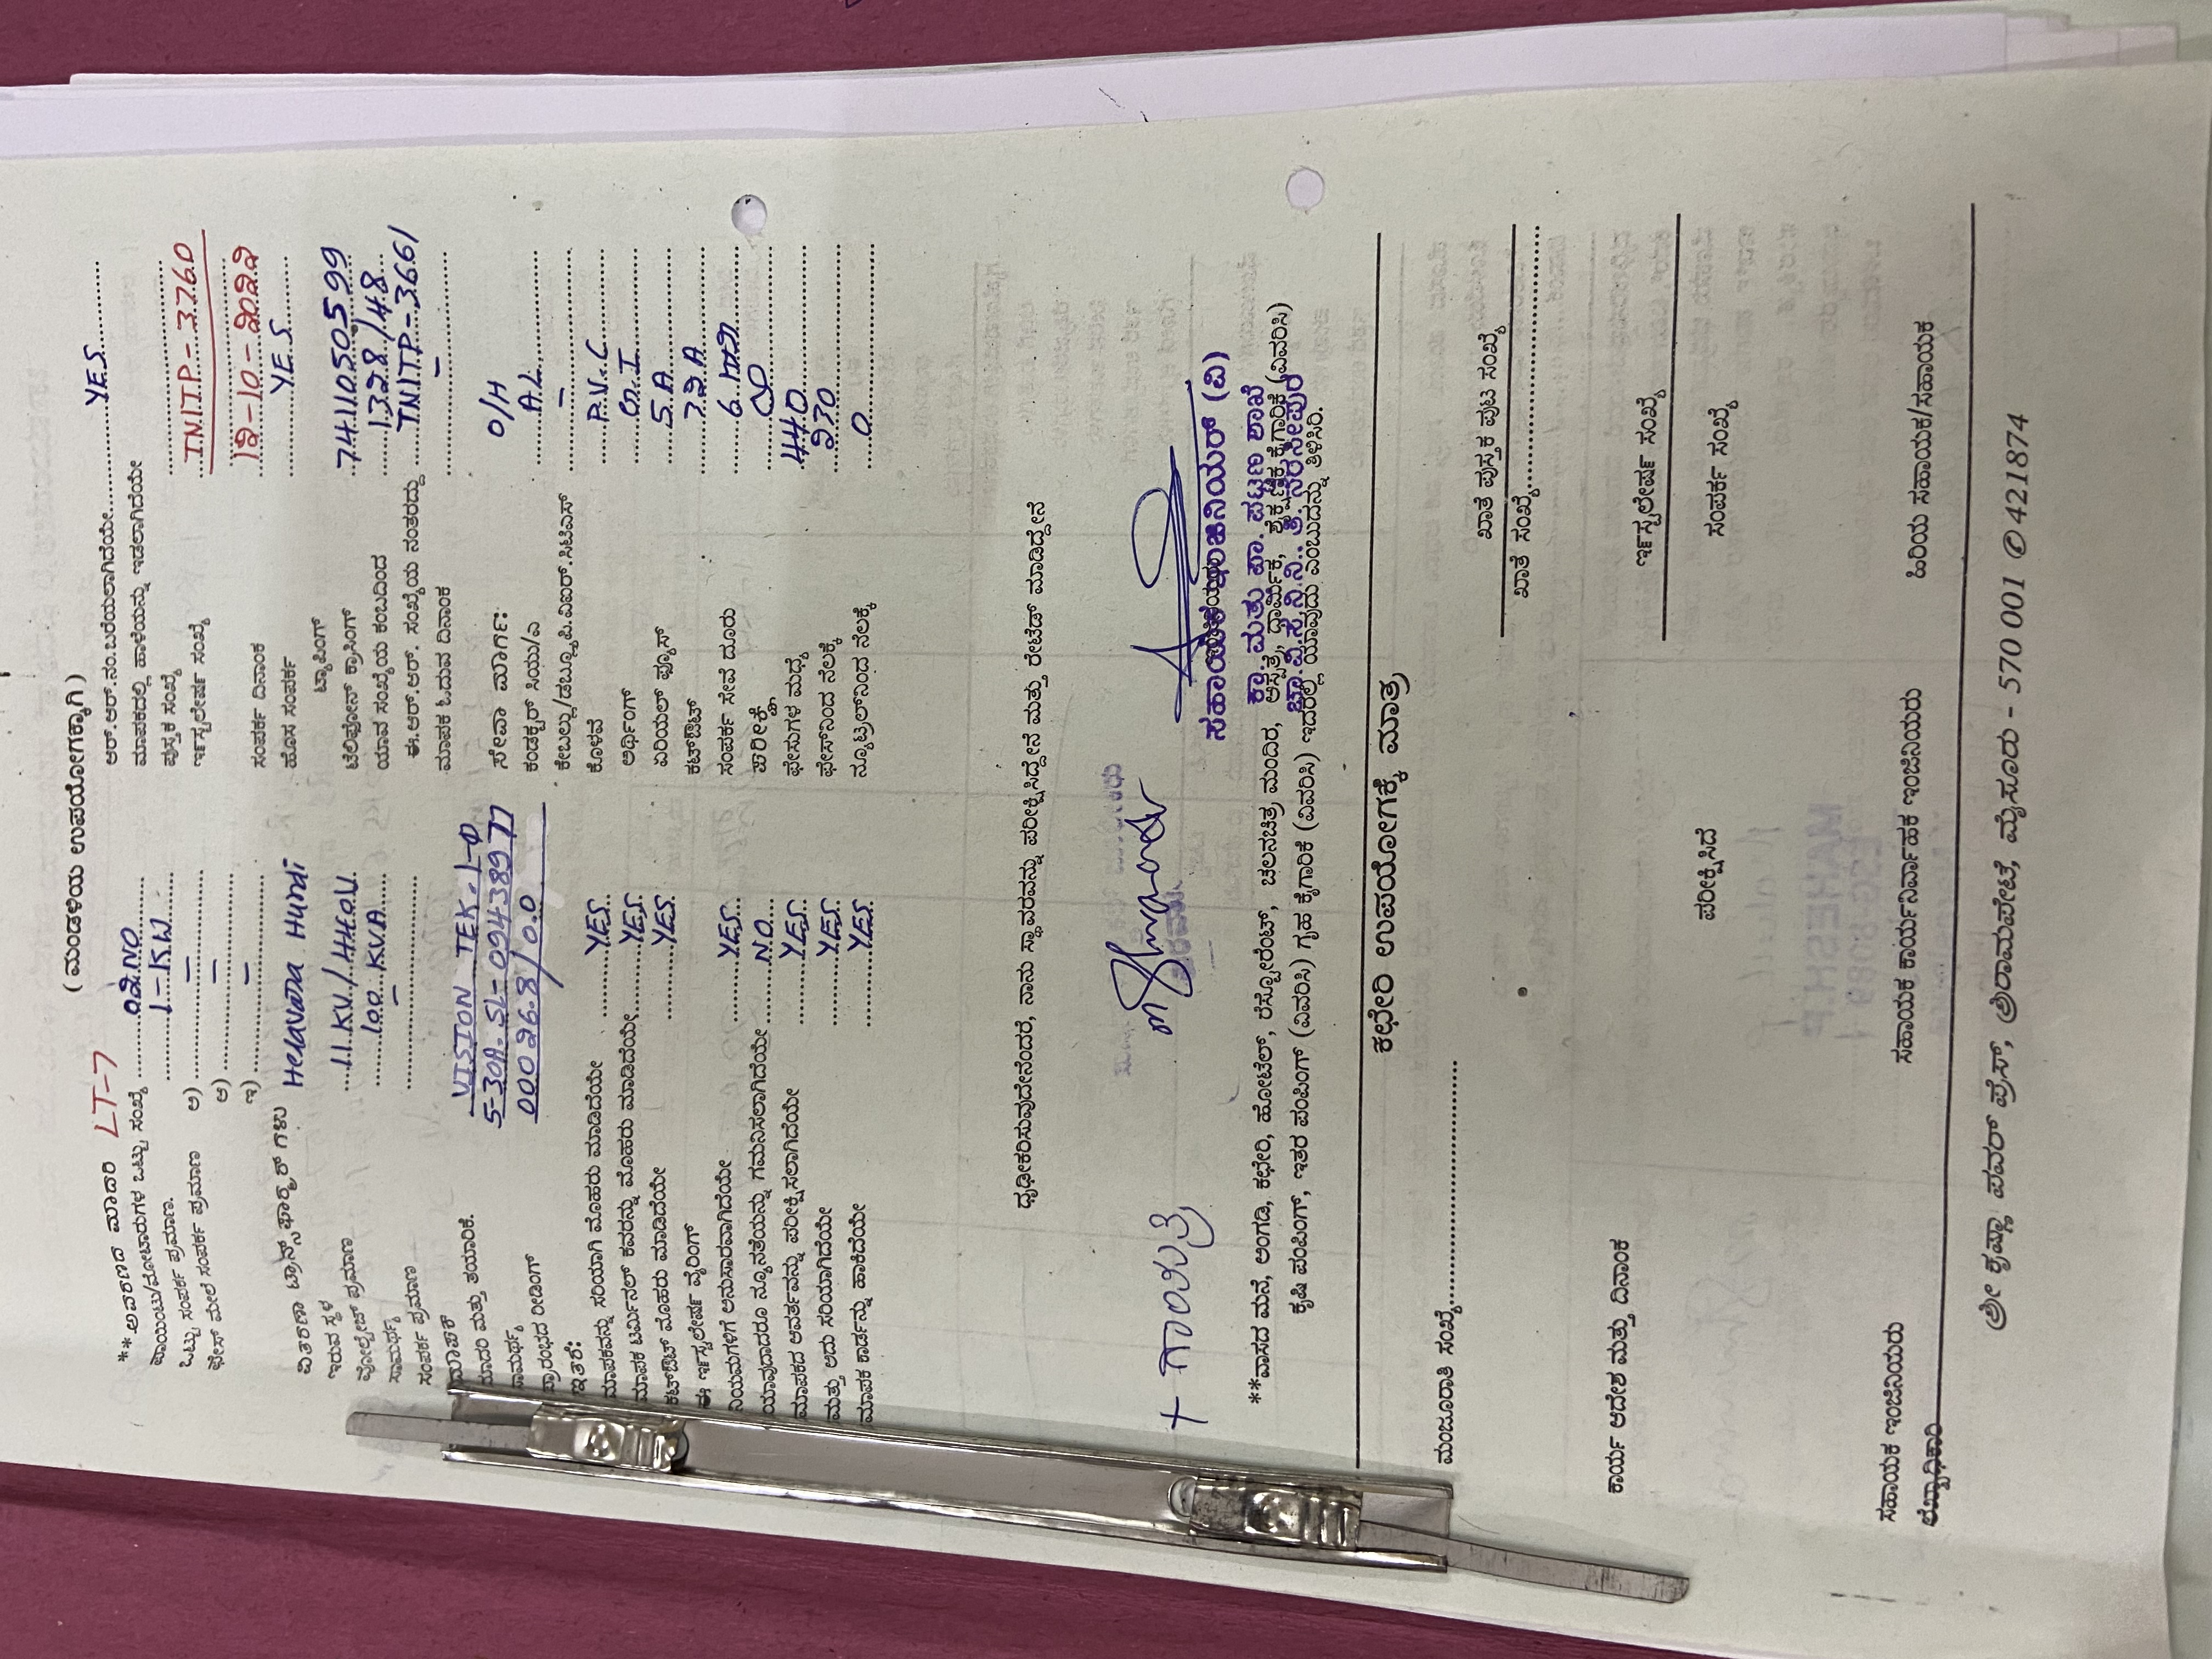 ( ಮಂಡಳಿಯ ಉಪಯೋಗಕ್ಕಾಗಿ )
** ಆವರಣದ ಮಾದರಿ LT-7
ಪಾಯಿಂಟು/ಮೋಟಾರುಗಳ ಒಟ್ಟು ಸಂಖ್ಯೆ 02.NO
ಒಟ್ಟು ಸಂಪರ್ಕ ಪ್ರಮಾಣ. 1-KW
ಫೇಸ್ ಮೇಲೆ ಸಂಪರ್ಕ ಪ್ರಮಾಣ ಅ) –
ಆ) –
ಇ) –
ವಿತರಣಾ ಟ್ರಾನ್ಸ್‌ಫಾರ್ಮರ್ ಗಳು
ಇರುವ ಸ್ಥಳ Helavara Hundi
ವೋಲ್ಟೇಜ್ ಪ್ರಮಾಣ 11.KV/440V.
ಸಾಮರ್ಥ್ಯ 100 KVA
ಸಂಪರ್ಕ ಪ್ರಮಾಣ –
ಮಾಪಕ
ಮಾದರಿ ಮತ್ತು ತಯಾರಿಕೆ. VISION TEK-1-Φ
ಸಾಮರ್ಥ್ಯ 5-30A-SL-09438977
ಪ್ರಾರಂಭದ ರೀಡಿಂಗ್ 00026.8/0.0
ಇತರೆ:
ಮಾಪಕವನ್ನು ಸರಿಯಾಗಿ ಮೊಹರು ಮಾಡಿದೆಯೇ YES
ಮಾಪಕ ಟರ್ಮಿನಲ್ ಕವರನ್ನು ಮೊಹರು ಮಾಡಿದೆಯೇ YES
ಕಟ್‌ಔಟ್ ಮೊಹರು ಮಾಡಿದೆಯೇ YES
ಈ ಇನ್ಸ್ಟಲೇಷನ್ ವೈರಿಂಗ್
ನಿಯಮಗಳಿಗೆ ಅನುಸಾರವಾಗಿದೆಯೇ YES
ಯಾವುದಾದರೂ ನ್ಯೂನತೆಯನ್ನು ಗಮನಿಸಲಾಗಿದೆಯೇ NO
ಮಾಪಕದ ಆವರ್ತವನ್ನು ಪರೀಕ್ಷಿಸಲಾಗಿದೆಯೇ YES
ಮತ್ತು ಅದು ಸರಿಯಾಗಿದೆಯೇ YES
ಮಾಪಕ ಕಾರ್ಡನ್ನು ಹಾಕಿದೆಯೇ YES
ಆರ್.ಆರ್.ನಂ.ಬರೆಯಲಾಗಿದೆಯೇ YES
ಮಾಪಕದಲ್ಲಿ ಹಾಳೆಯನ್ನು ಇಡಲಾಗಿದೆಯೇ
ಪುಸ್ತಕ ಸಂಖ್ಯೆ
ಇನ್ಸ್ಟಲೇಷನ್ ಸಂಖ್ಯೆ TNITP-3760
ಸಂಪರ್ಕ ದಿನಾಂಕ 12-10-2022
ಹೊಸ ಸಂಪರ್ಕ YES
ಟ್ಯಾಪಿಂಗ್
ಟೆಲಿಫೋನ್ ಕ್ರಾಸಿಂಗ್ 7411050599
ಯಾವ ಸಂಖ್ಯೆಯ ಕಂಬದಿಂದ 1328/48
ಈ.ಆರ್.ಆರ್. ಸಂಖ್ಯೆಯ ನಂತರದ್ದು TNITP-3661
ಮಾಪಕ ಓದುವ ದಿನಾಂಕ –
ಸೇವಾ ಮಾರ್ಗ: O/H
ಕಂಡಕ್ಟರ್ ಸಿಯು/ಎ A.L
ಕೇಬಲ್ಲು/ಡಬ್ಲ್ಯೂ.ಪಿ.ಎಐಆರ್.ಸಿಟಿಎಸ್ –
ಕೊಳವೆ P.V.C
ಅರ್ಥಿಂಗ್ G.I
ಏರಿಯಲ್ ಫ್ಯೂಸ್ 5.A
ಕಟ್‌ಔಟ್ 32.A
ಸಂಪರ್ಕ ಸೇವೆ ದೂರು
ಪರೀಕ್ಷೆ
ಫೇಸುಗಳ ಮಧ್ಯೆ 440
ಫೇಸ್‌ನಿಂದ ನೆಲಕ್ಕೆ 230
ನ್ಯೂಟ್ರಲ್‌ನಿಂದ ನೆಲಕ್ಕೆ 0
ದೃಢೀಕರಿಸುವುದೇನೆಂದರೆ, ನಾನು ಸ್ಥಾವರವನ್ನು ಪರೀಕ್ಷಿಸಿದ್ದೇನೆ ಮತ್ತು ರೇಟೆಡ್ ಮಾಡಿದ್ದೇನೆ
ಸಹಾಯಕ ಇಂಜಿನಿಯರ್ (ವಿ)
ಕಾ. ಮತ್ತು ಪಾ. ಪಟ್ಟಣ ಶಾಖೆ
ಚಾ.ವಿ.ಸ.ನಿ.ನಿ., ತಿ. ನರಸೀಪುರ
**ವಾಸದ ಮನೆ, ಅಂಗಡಿ, ಕಛೇರಿ, ಹೋಟೆಲ್, ರೆಸ್ಟೋರೆಂಟ್, ಚಲನಚಿತ್ರ ಮಂದಿರ, ಆಸ್ಪತ್ರೆ, ಧಾರ್ಮಿಕ, ಶೈಕ್ಷಣಿಕ ಕೈಗಾರಿಕೆ (ವಿವರಿಸಿ)
ಕೃಷಿ ಪಂಪಿಂಗ್, ಇತರ ಪಂಪಿಂಗ್ (ವಿವರಿಸಿ) ಗೃಹ ಕೈಗಾರಿಕೆ (ವಿವರಿಸಿ) ಇದರಲ್ಲಿ ಯಾವುದು ಎಂಬುದನ್ನು ತಿಳಿಸಿರಿ.
ಕಛೇರಿ ಉಪಯೋಗಕ್ಕೆ ಮಾತ್ರ
ಮಂಜೂರಾತಿ ಸಂಖ್ಯೆ
ಖಾತೆ ಪುಸ್ತಕ ಪುಟ ಸಂಖ್ಯೆ
ಖಾತೆ ಸಂಖ್ಯೆ
ಕಾರ್ಯ ಆದೇಶ ಮತ್ತು ದಿನಾಂಕ
ಇನ್ಸ್ಟಲೇಷನ್ ಸಂಖ್ಯೆ
ಪರೀಕ್ಷಿಸಿದೆ
ಸಂಪರ್ಕ ಸಂಖ್ಯೆ
ಸಹಾಯಕ ಇಂಜಿನಿಯರು
ಸಹಾಯಕ ಕಾರ್ಯನಿರ್ವಾಹಕ ಇಂಜಿನಿಯರು
ಹಿರಿಯ ಸಹಾಯಕ/ಸಹಾಯಕ
ಲೆಕ್ಕಾಧಿಕಾರಿ
ಶ್ರೀ ಕೃಷ್ಣಾ ಪವರ್ ಪ್ರೆಸ್, ಶ್ರೀರಾಮಪೇಟೆ, ಮೈಸೂರು - 570 001 ✆ 421874